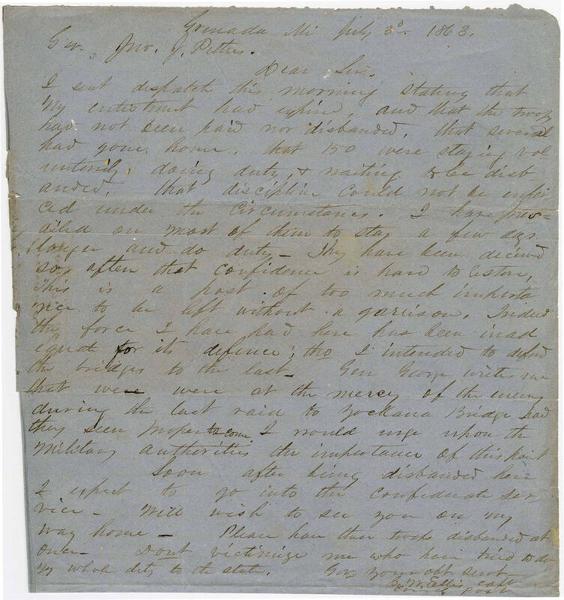 Grenada Mi July 3d 1863.
Gov. Jno. J. Pettus.
Dear Sir.
I sent dispatch this morning stating that
my enlistment had expired, and that the troops
had not been paid nor disbanded, that several
had gone home. that 150 were staying vol
untarily, doing duty, & waiting to be disb
anded, that discipline could not be enfor
ced under the circumstances. I have prev-
ailed on most of them to stay a few days
longer and do duty - They have been deceived
so often that confidence is hard to restore,
This is a post of too much importa
nce to be left without a garrison. Indeed
the force I have had here has been inad
equate for its defence; tho I intended to defend
the bridges to the last - Gen George writes me
that were were at the mercy of the enemy
during the last raid to Yockana Bridge had
they seen proper to come I would urge upon the
Military authorities the importance of this point
Soon after being disbanded here
I expect to go into the confederate ser
vice - Will wish to see you on my
way home - Please have these troops disbanded at
once - Dont victimize me who have tried to do
my whole duty to the state. Gov your obt servt
Ellis capt
Post